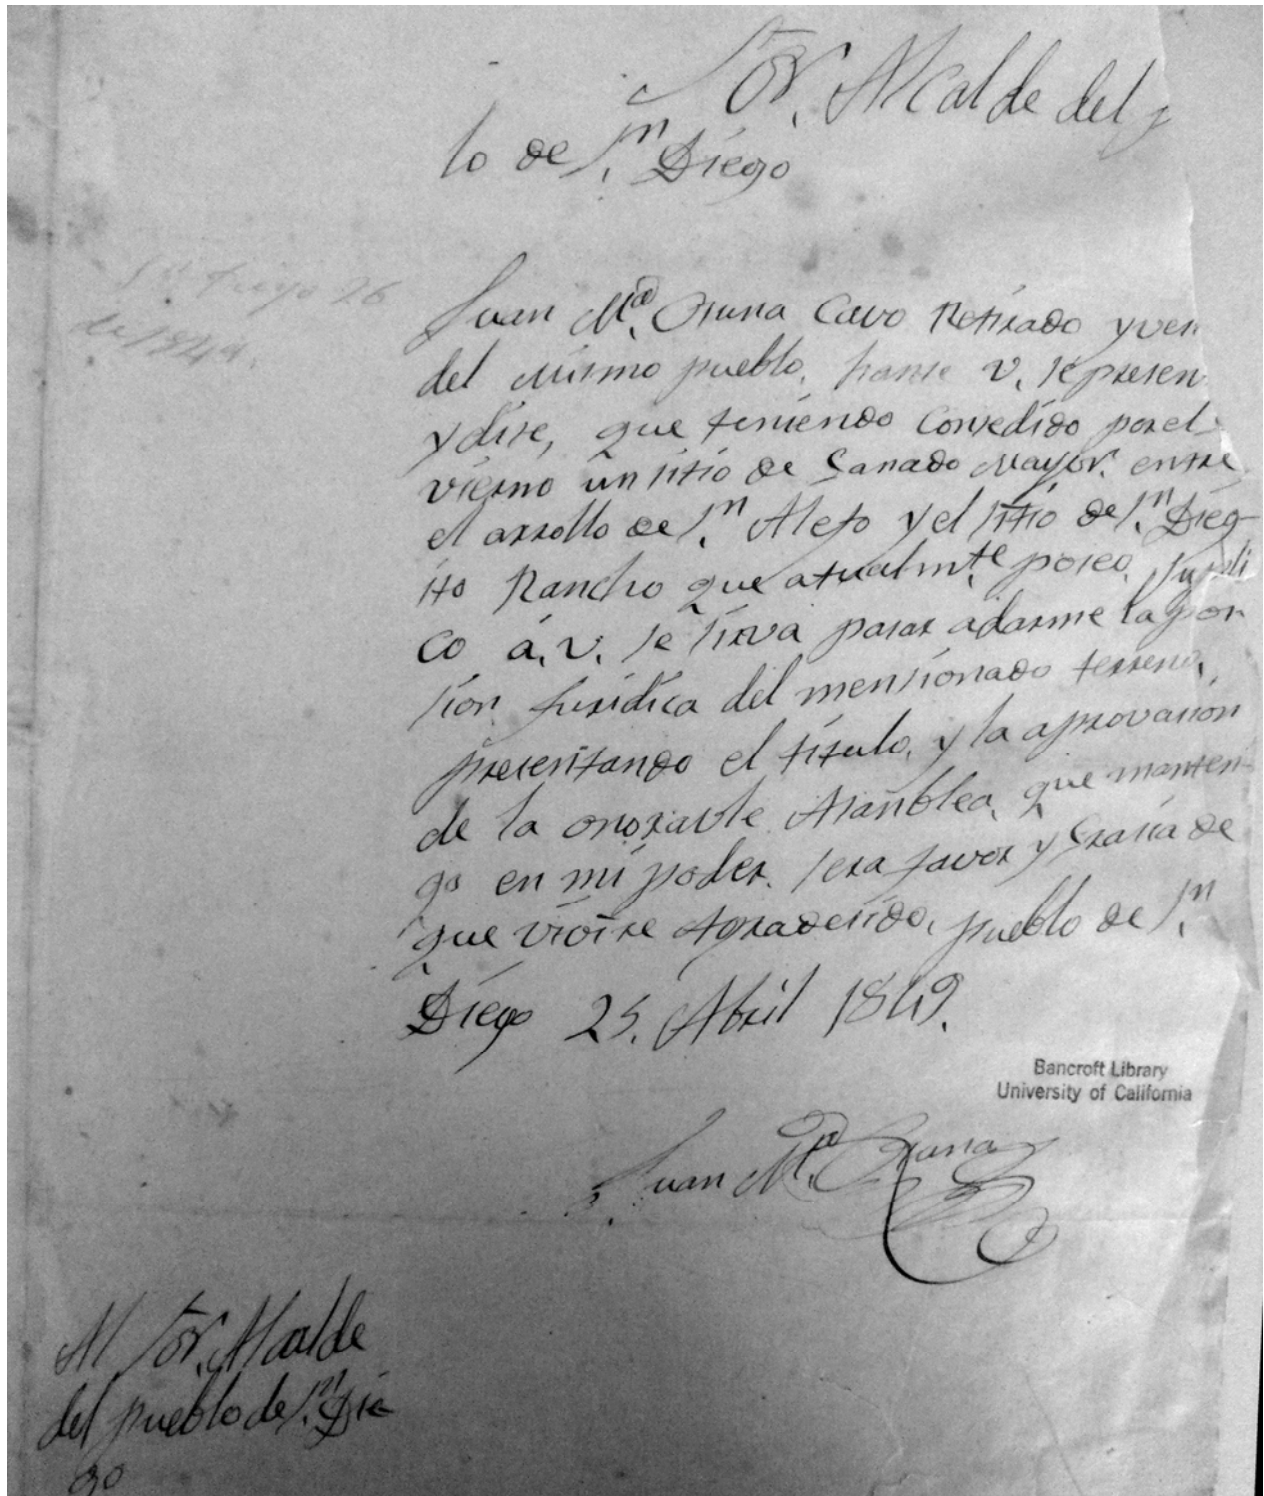 Sor. Alcalde del p
lo de Sn. Diego
Sn. Diego 26
de 1849.
Juan Ma. Osuna Cavo Retirado y vesi
del mismo pueblo, hante V. se presen
y dise, que teniendo Consedido por el
vierno un sitio de Ganado Mayor. entre
el arrollo de Sn. Alejo y el sitio de Sn. Dieg-
ito Rancho que atualmte. poseo, supli
co á. V. se sirva pasar a darme la pos
sion Juridica del mensionado terreno,
presentando el titulo, y la aprovasion
de la onoravle Asanblea, que manten-
go en mi poder. sera favor y Grasia de
que vivire Agradesido, pueblo de Sn.
Diego 25. Abril 1849.
Bancroft Library
University of California
Juan Ma. Osuna
Al Sor. Alcalde
del pueblo de Sn. Die
go